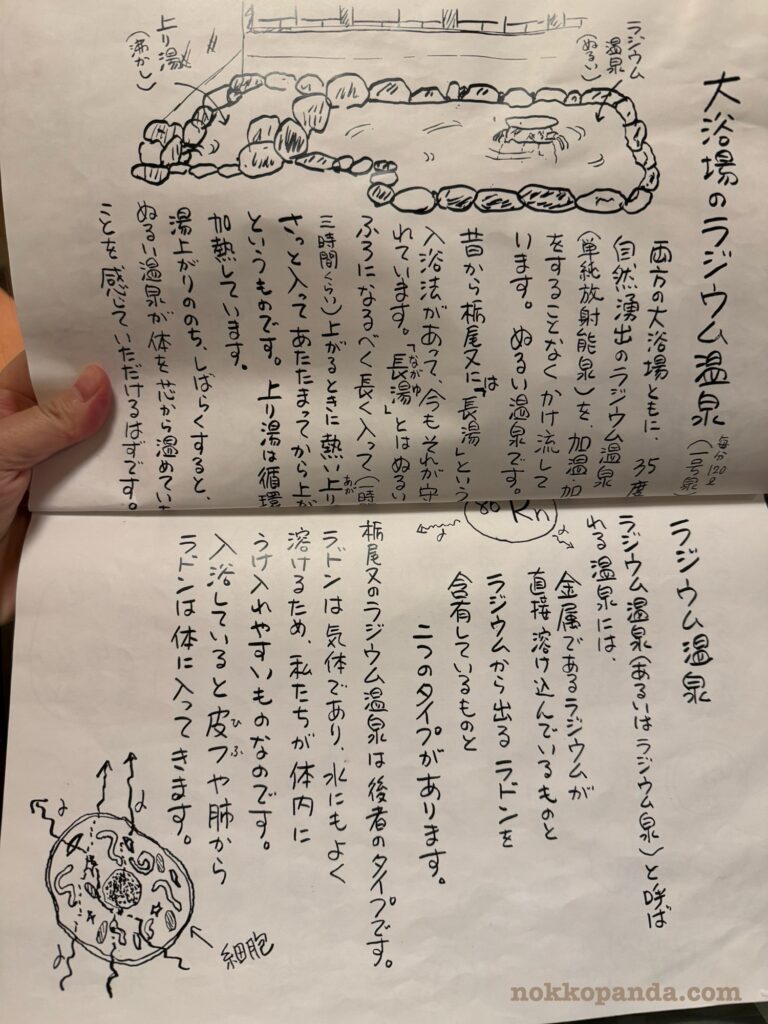 大浴場のラジウム温泉
毎分120ℓ
(一号泉)
ラジウム
温泉
(ぬるい)
上り湯
(沸かし)
両方の大浴場ともに、35度
自然湧出のラジウム温泉
(単純放射能泉)を、加温・加
をすることなくかけ流して
います。ぬるい温泉です。
昔から栃尾又には「長湯」という
入浴法があって、今もそれが守
れています。「長湯」とはぬるい
ながゆ
ふろになるべく長く入って(一時
三時間くらい)上がるときに熱い上り
あが
さっと入ってあたたまってから上が
というものです。上り湯は循環
加熱しています。
湯上がりののち、しばらくすると、
ぬるい温泉が体を芯から温めてい
ことを感じていただけるはずです。
ラジウム温泉
ラジウム温泉(あるいはラジウム泉)と呼ば
れる温泉には、
金属であるラジウムが
直接溶け込んでいるものと
ラジウムから出るラドンを
含有しているものと
二つのタイプがあります。
86 Rn
α
α
栃尾又のラジウム温泉は後者のタイプです。
ラドンは気体であり、水にもよく
溶けるため、私たちが体内に
うけ入れやすいものなのです。
入浴していると皮フや肺から
ひふ
ラドンは体に入ってきます。
α
α
α
α
細胞
nokkopanda.com